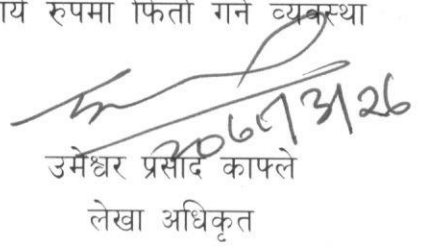 रुपमा फिर्ता गर्ने व्यवस्था
उमेश्वर प्रसाद काफ्ले
लेखा अधिकृत